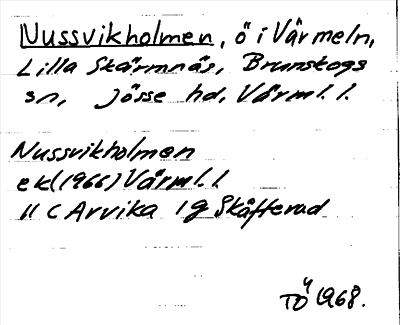 Nussvikholmen, ö i Värmeln,
Lilla Skärmnäs, Brunskogs
sn, Jösse hd, Värml. l.
Nussvikholmen
ek(1966) Värml. l.
11 C Arvika 1g Skåfterud
TÖ 1968.